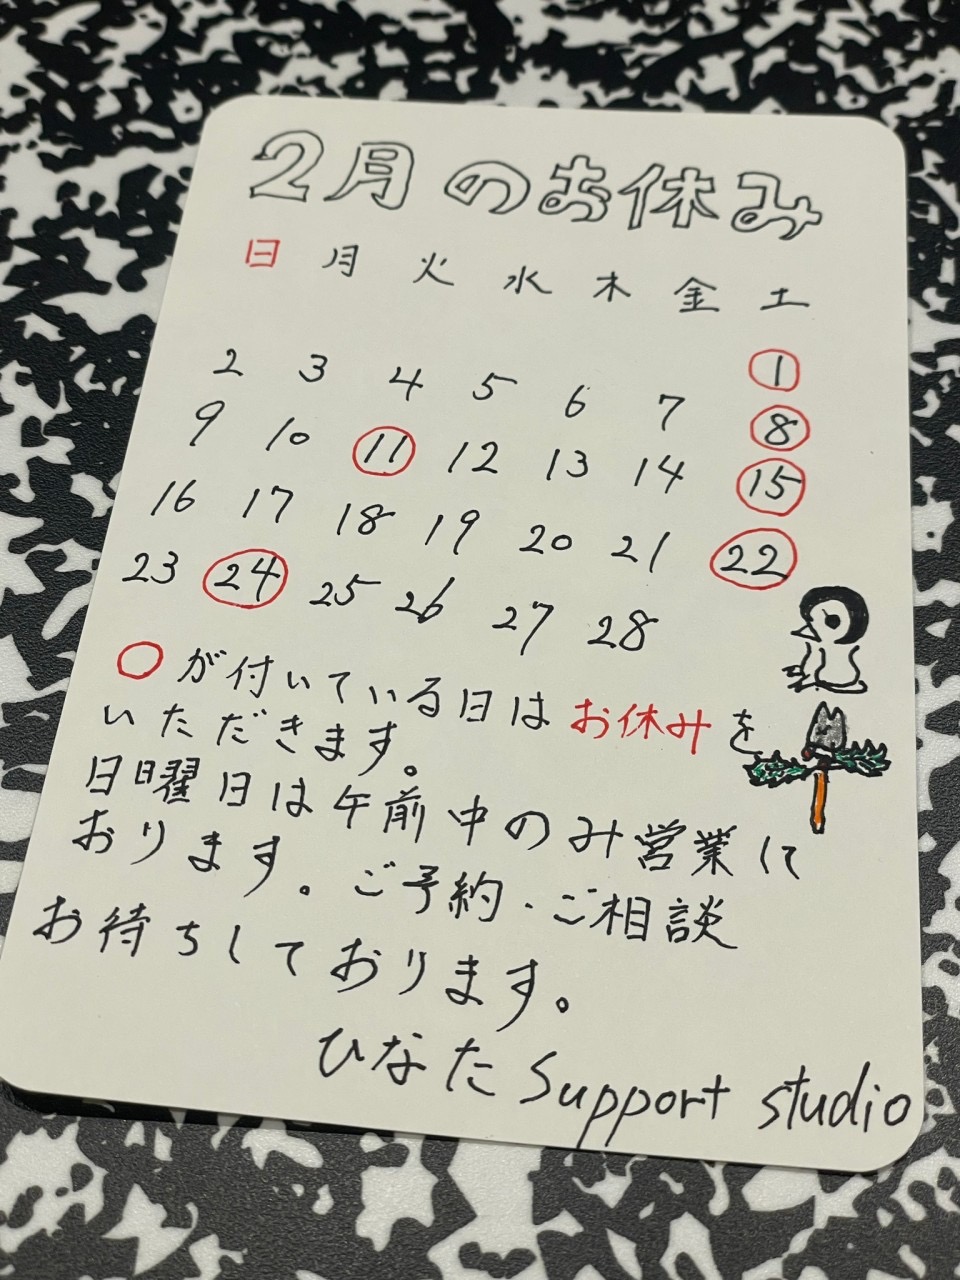 2月のお休み
日 月 火 水 木 金 土
1
2 3 4 5 6 7 8
9 10 11 12 13 14 15
16 17 18 19 20 21 22
23 24 25 26 27 28
○が付いている日はお休みを
いただきます。
日曜日は午前中のみ営業して
おります。ご予約・ご相談
お待ちしております。
ひなた Support studio